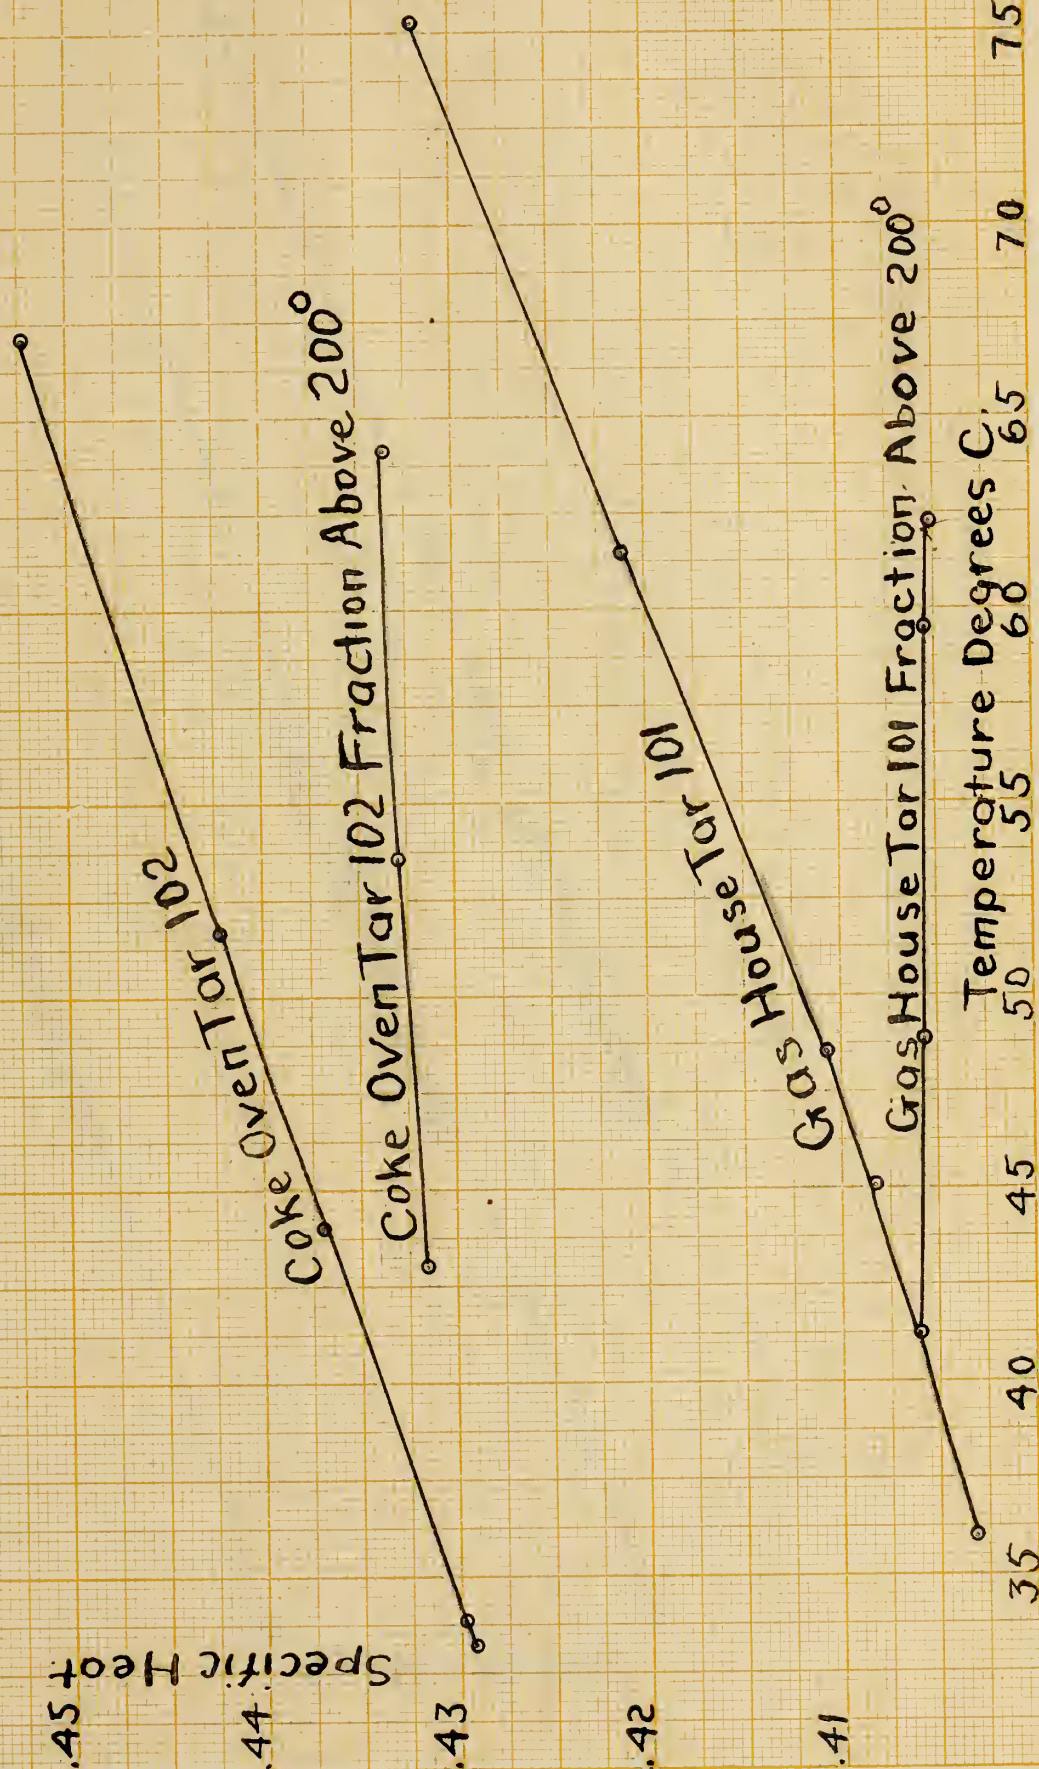 Specific Heat
.45
.44
.43
.42
.41
Coke Oven Tar 102
Coke Oven Tar 102 Fraction Above 200°
Gas House Tar 101
Gas House Tar 101 Fraction Above 200°
Temperature Degrees C.
35 40 45 50 55 60 65 70 75